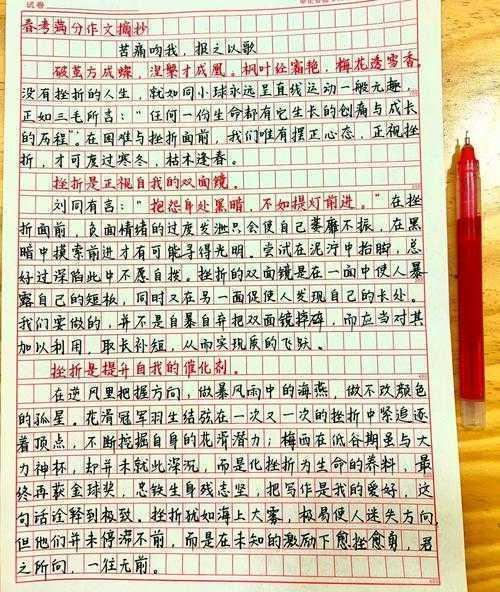 试卷
春考满分作文摘抄
苦痛吻我，报之以歌
破茧方成蝶，涅槃才成凰。枫叶经霜艳，梅花透雪香。
没有挫折的人生，就如同小球永远呈直线运动一般无趣，
正如三毛所言：“任何一份生命都有它生长的创痛与成长
的历程”。在困难与挫折面前，我们唯有摆正心态，正视挫
折，才可度过寒冬，枯木逢春。
挫折是正视自我的双面镜。
刘同有言：“抱怨身处黑暗，不如提灯前进。”在挫
折面前，负面情绪的过度发泄只会使自己萎靡不振，在黑
暗中摸索前进才有可能寻得光明。尝试在泥泞中抬脚，总
好过深陷此中不愿自拔。挫折的双面镜是在一面中使人暴
露自己的短板，同时又在另一面促使人发现自己的长处。
我们要做的，并不是自暴自弃把双面镜摔碎，而应当对其
加以利用，取长补短，从而实现质的飞跃。
挫折是提升自我的催化剂。
在逆风里把握方向，做暴风雨中的海燕，做不改颜色
的孤星。花滑冠军羽生结弦在一次又一次的挫折中紧追逐
着顶点，不断挖掘自身的花滑潜力；梅西在低谷期虽与大
力神杯，却并未就此深沉，而是化挫折为生命的养料，最
终再获金球奖，史铁生身残志坚，把写作是我的爱好，这
句话诠释到极致。挫折犹如海上大雾，极易使人迷失方向，
但他们并未停滞不前，而是在未知的激励下愈挫愈勇，君
之所向，一往无前。